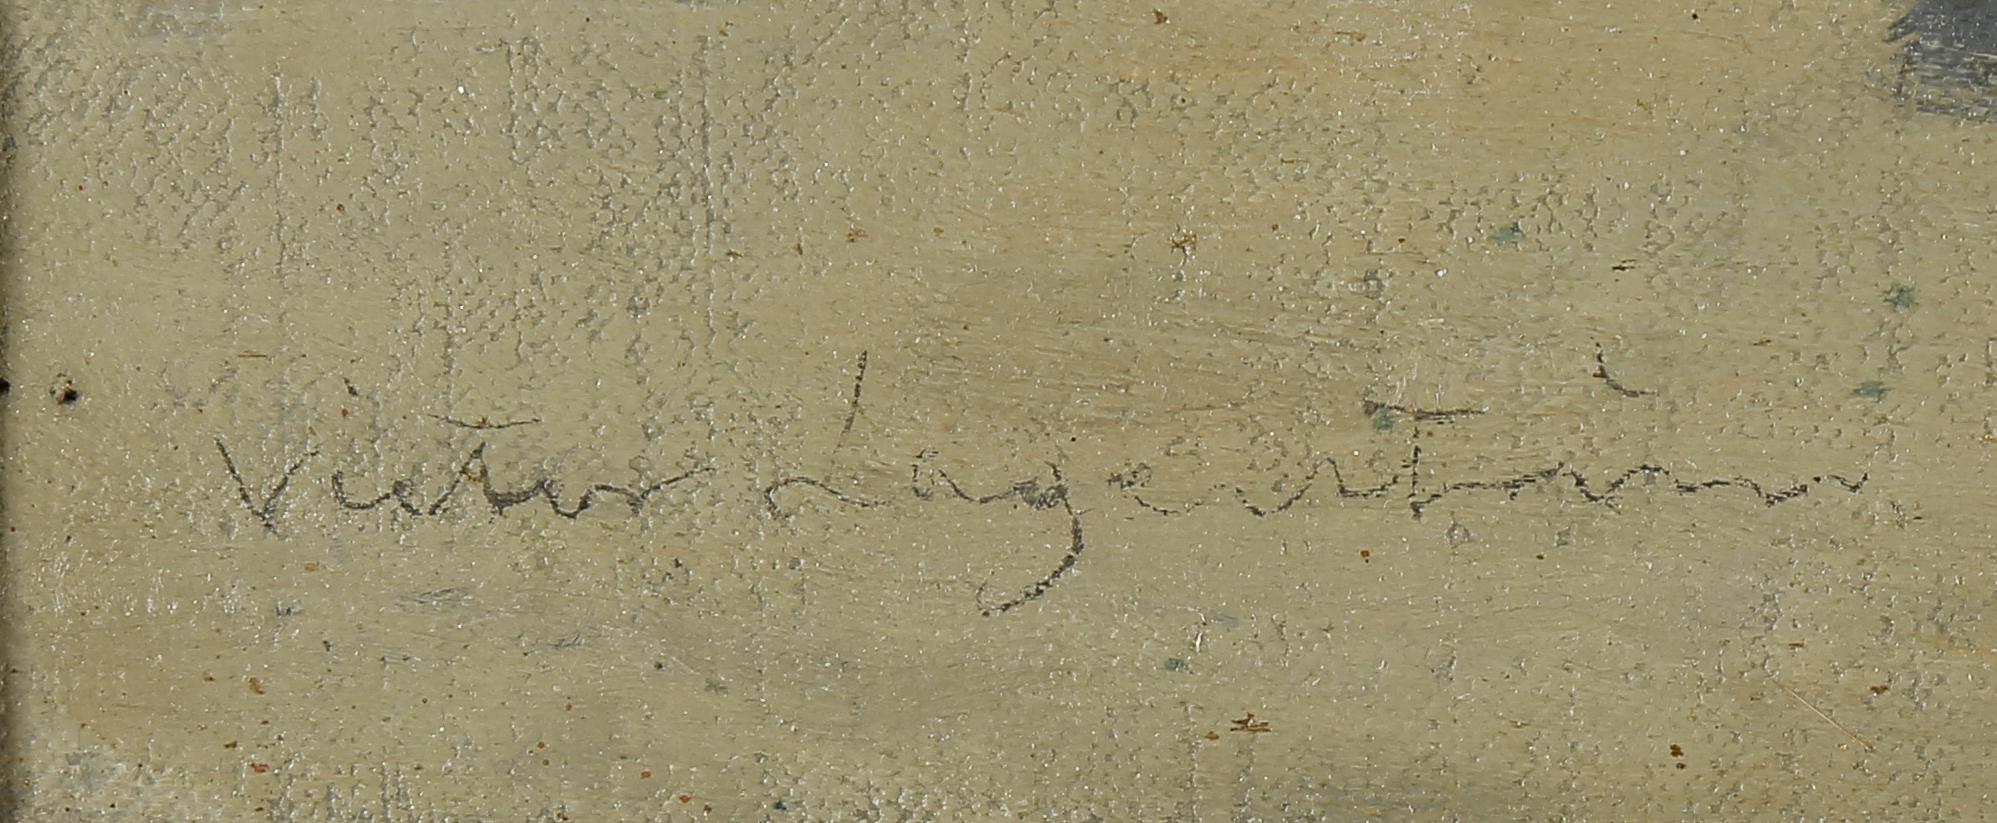 Victor Lagerström